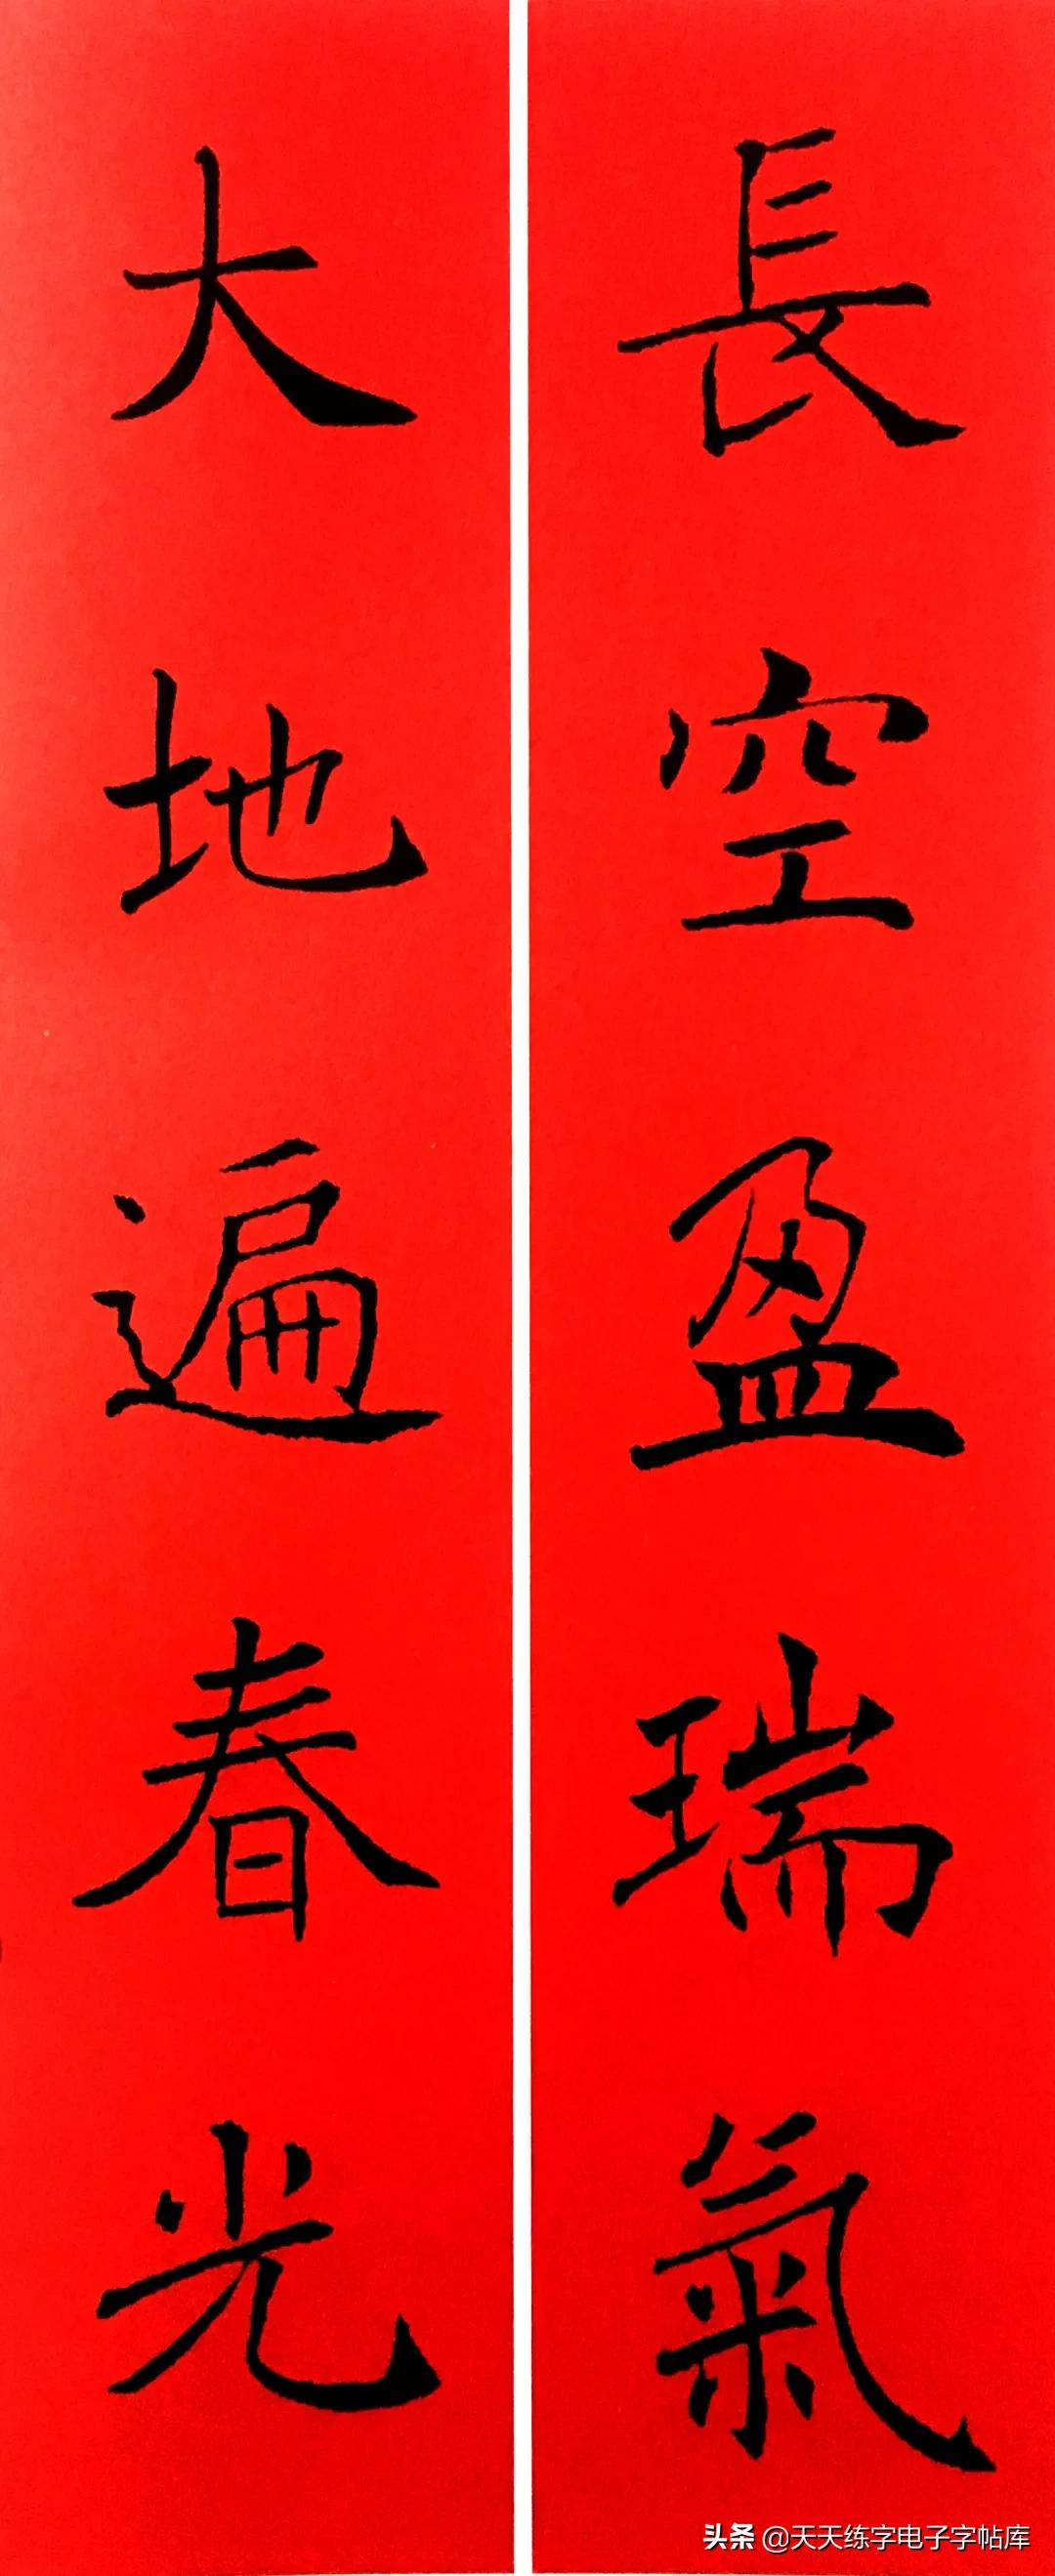 長空盈瑞氣
大地遍春光
头条 @天天练字电子字帖库